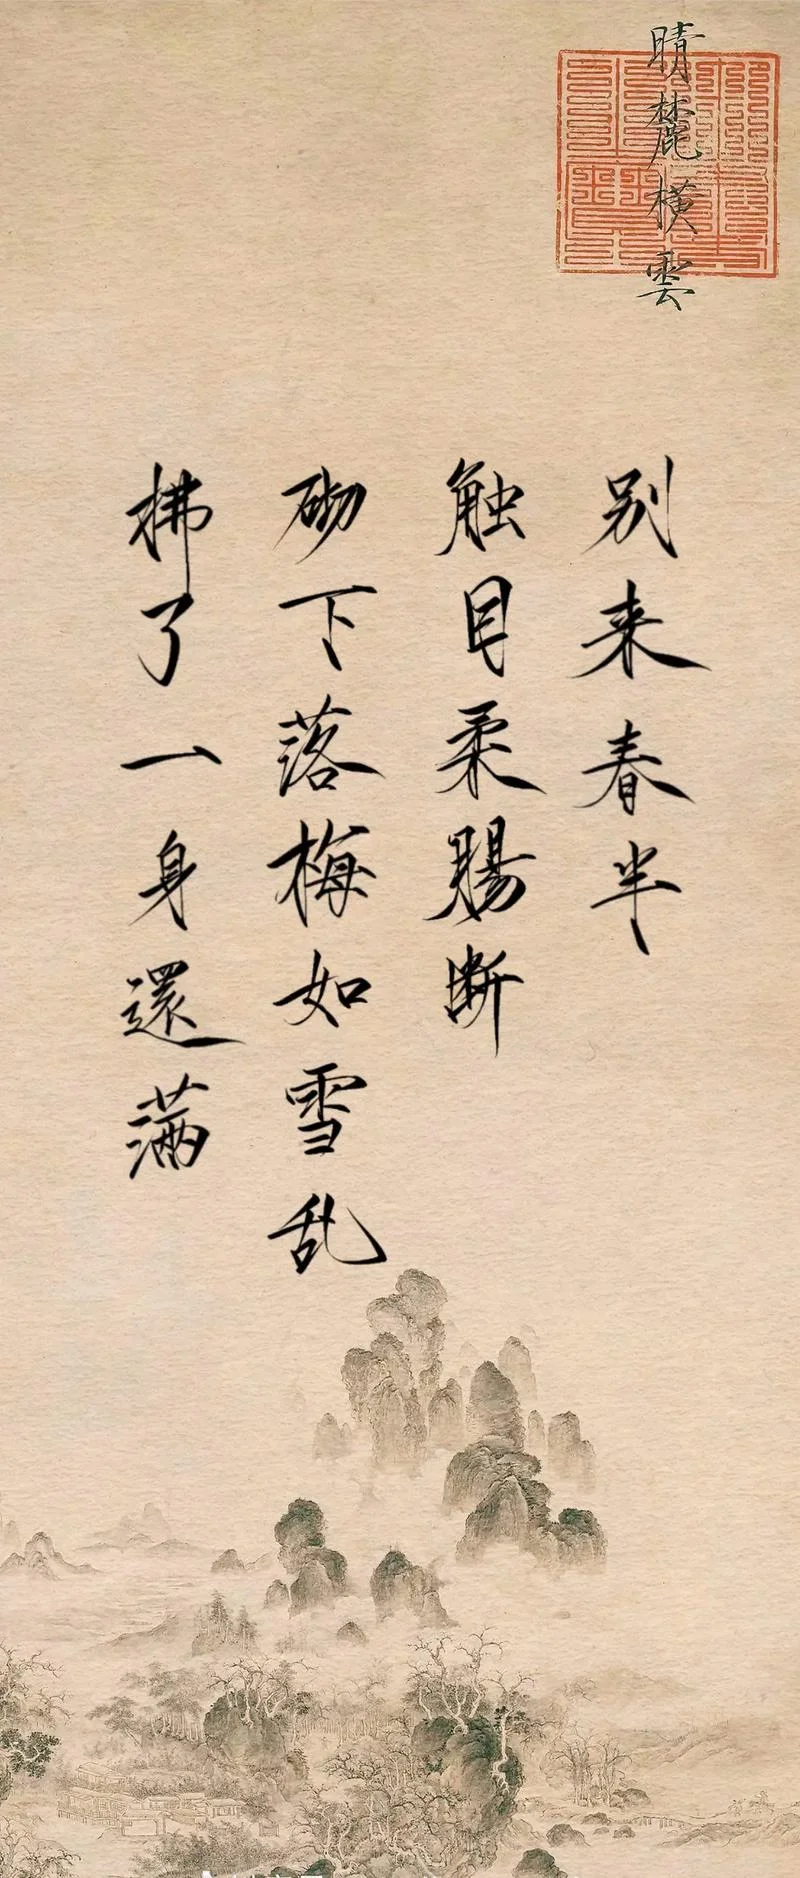 晴麓橫雲
别来春半
触目柔腸断
砌下落梅如雪乱
拂了一身還满